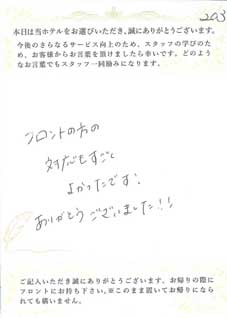 203
本日は当ホテルをお選びいただき、誠にありがとうございます。
今後のさらなるサービス向上のため、スタッフの学びのため、お客様からお言葉を頂けましたら幸いです。どのようなお言葉でもスタッフ一同励みになります。
フロントの方の
対応もすごく
よかったです!
ありがとうございました!!
ご記入いただき誠にありがとうございます。お帰りの際に
フロントにお持ち下さい。※このまま置いてお帰りになら
れても構いません。